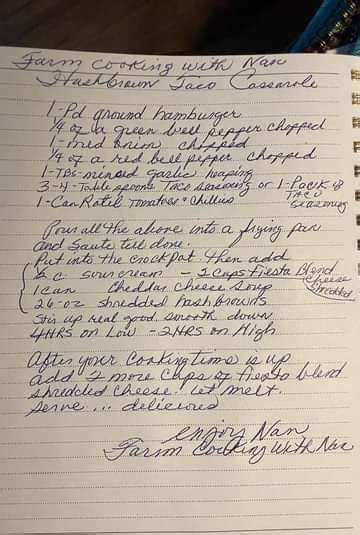 Farm cooking with Nan
Hashbrown Taco Casserole
1-Pd ground hamburger
1/4 of a green bell pepper chopped
1-med onion chopped
1/4 of a red bell pepper chopped
1-TBS-minced garlic heaping
3-4-Table spoons Taco seasoning or 1-Pack of
TACO
seasoning
1-Can Rotel Tomatoes & Chilies
Pour all the above into a frying pan
and Saute till done.
Put into the crock Pot. Then add
c sour cream - 2 cups Fiesta Blend
cheese
shredded
1 can cheddar cheese soup
26-oz shredded hash browns
Stir up real good. smooth down
4HRS on Low - 2HRS on High.
After your cooking time is up
add 2 more cups of fiesta blend
shredded cheese. let melt.
serve... delicious
enjoy Nan
Farm cooking with Nan